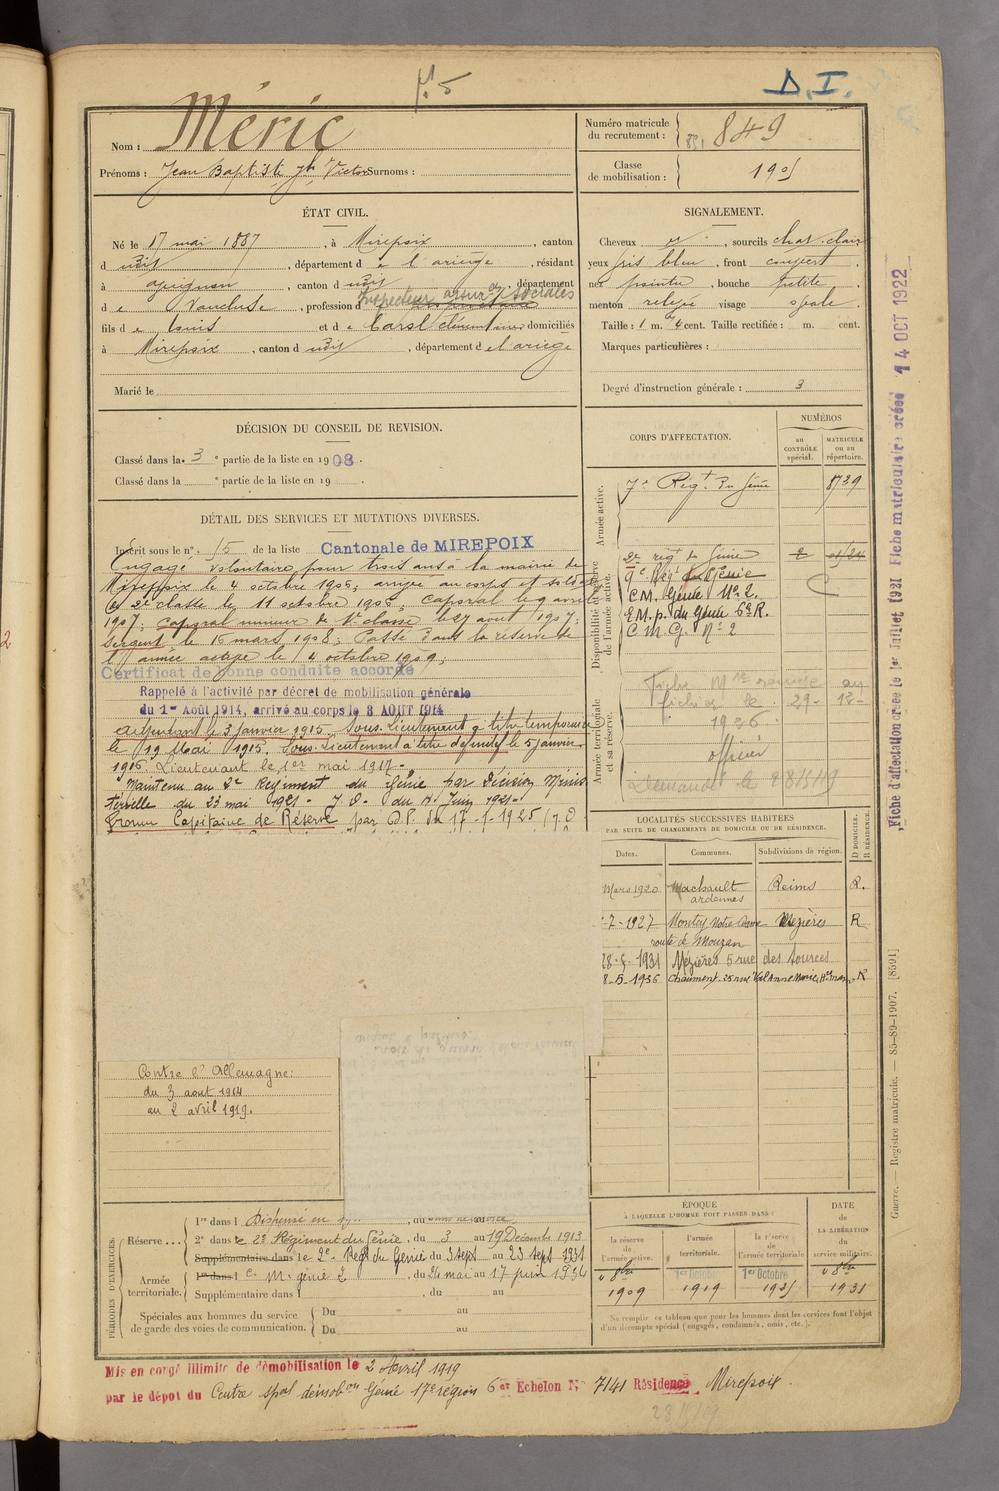 D.I.
Nom : Méric
Prénoms : Jean Baptiste Jh Victor Surnoms :
Numéro matricule
du recrutement : 849
Classe
de mobilisation : 1905
ÉTAT CIVIL.
Né le 17 mai 1887, à Mirepoix, canton
d udit, département d e l'ariège, résidant
à avignon, canton d udit, département
d e Vaucluse, profession d Inspecteur assur ces sociales
fils d e Louis et d e domiciliés
à Mirepoix, canton d udit, département d e l ariège
Marié le
SIGNALEMENT.
Cheveux, sourcils chat. clair
yeux gris bleu, front couvert
nez pointu, bouche petite
menton relevé visage ovale
Taille : 1 m. 74 cent. Taille rectifiée : m. cent.
Marques particulières :
Degré d'instruction générale : 3
DÉCISION DU CONSEIL DE REVISION.
Classé dans la 3e partie de la liste en 1908.
Classé dans la e partie de la liste en 19 .
DÉTAIL DES SERVICES ET MUTATIONS DIVERSES.
Inscrit sous le n° 15 de la liste Cantonale de MIREPOIX
Engagé volontaire pour trois ans à la mairie de
Mirepoix le 4 octobre 1906; arrivé au corps et soldat
de 2e classe le 11 octobre 1906; caporal le 9 avril
1907; caporal mineur de 1re classe le 27 aout 1907;
Sergent le 16 mars 1908; Passé dans la réserve de
l'armée active le 4 octobre 1909;
Certificat de bonne conduite accordé
Rappelé à l'activité par décret de mobilisation générale
du 1er Août 1914, arrivé au corps le 3 AOUT 1914
adjudant le 3 janvier 1915 Sous-Lieutenant à titre temporaire
le 19 Mai 1915. Sous-Lieutenant à titre définitif le 5 janvier
1916. Lieutenant le 1er mai 1917.-
Maintenu au 2e Régiment du Génie par Décision Minis
térielle du 23 mai 1921 - J.O. du 4 Juin 1921-
Promu Capitaine de Réserve par D.P. du 17-1-1925 (J.O
Contre l'Allemagne:
du 3 aout 1914
au 2 avril 1919.
CORPS D'AFFECTATION.
NUMÉROS
au CONTRÔLE spécial.
MATRICULE ou au répertoire.
Armée active.
7e Régt du Génie 8739
Disponibilité et réserve de l'armée active.
2e régt du Génie
9e Régt du Génie
CM. Génie N° 2.
E.M.p. du Génie 6e R.
C M G. N° 2
Armée territoriale et sa réserve.
Fiche Mle au
fichier le 29-12-
1926
officier
Demandé le 28/5/19
LOCALITÉS SUCCESSIVES HABITÉES
PAR SUITE DE CHANGEMENTS DE DOMICILE OU DE RÉSIDENCE.
Dates. Communes. Subdivisions de région. D DOMICILE. R RÉSIDENCE.
Mars 1920 Machault ardennes Reims R.
-7-1927 Mézières R
route de Mouzon
1931 Mézières 5 rue des sources
8-5-1936 Chaumont R
Fiche d'affectation créée le 1er Juillet 1921 Fiche matriculaire créée 14 OCT 1922
Guerre. — Registre matricule. — 85-89-1907. [8591]
PÉRIODES D'EXERCICES.
Réserve . . . 1re dans l Dispensé en , du au
2e dans le 2e Régiment du Génie, du 3 au 19 Décembre 1913
Supplémentaire dans le 2e Regt du Génie du 3 sept au 23 sept 1931
Armée territoriale. 1re dans l C. M. génie 2, du 24 mai au 17 juin 1934
Supplémentaire dans l , du au
Spéciales aux hommes du service
de garde des voies de communication. Du au
Du au
ÉPOQUE
À LAQUELLE L'HOMME DOIT PASSER DANS :
la réserve de l'armée active.
l'armée territoriale.
la réserve de l'armée territoriale
DATE de LA LIBÉRATION du service militaire.
4 8bre 1909
1er Octobre 1919
1er Octobre 1925
8bre 1931
Ne remplir ce tableau que pour les hommes dont les services font l'objet
d'un décompte spécial (engagés, condamnés, omis, etc.).
Mis en congé illimité de démobilisation le 2 Avril 1919
par le dépot du Centre spal démobon Génie 17e région 6e Echelon N° 7141 Résidence Mirepoix
28/5/19